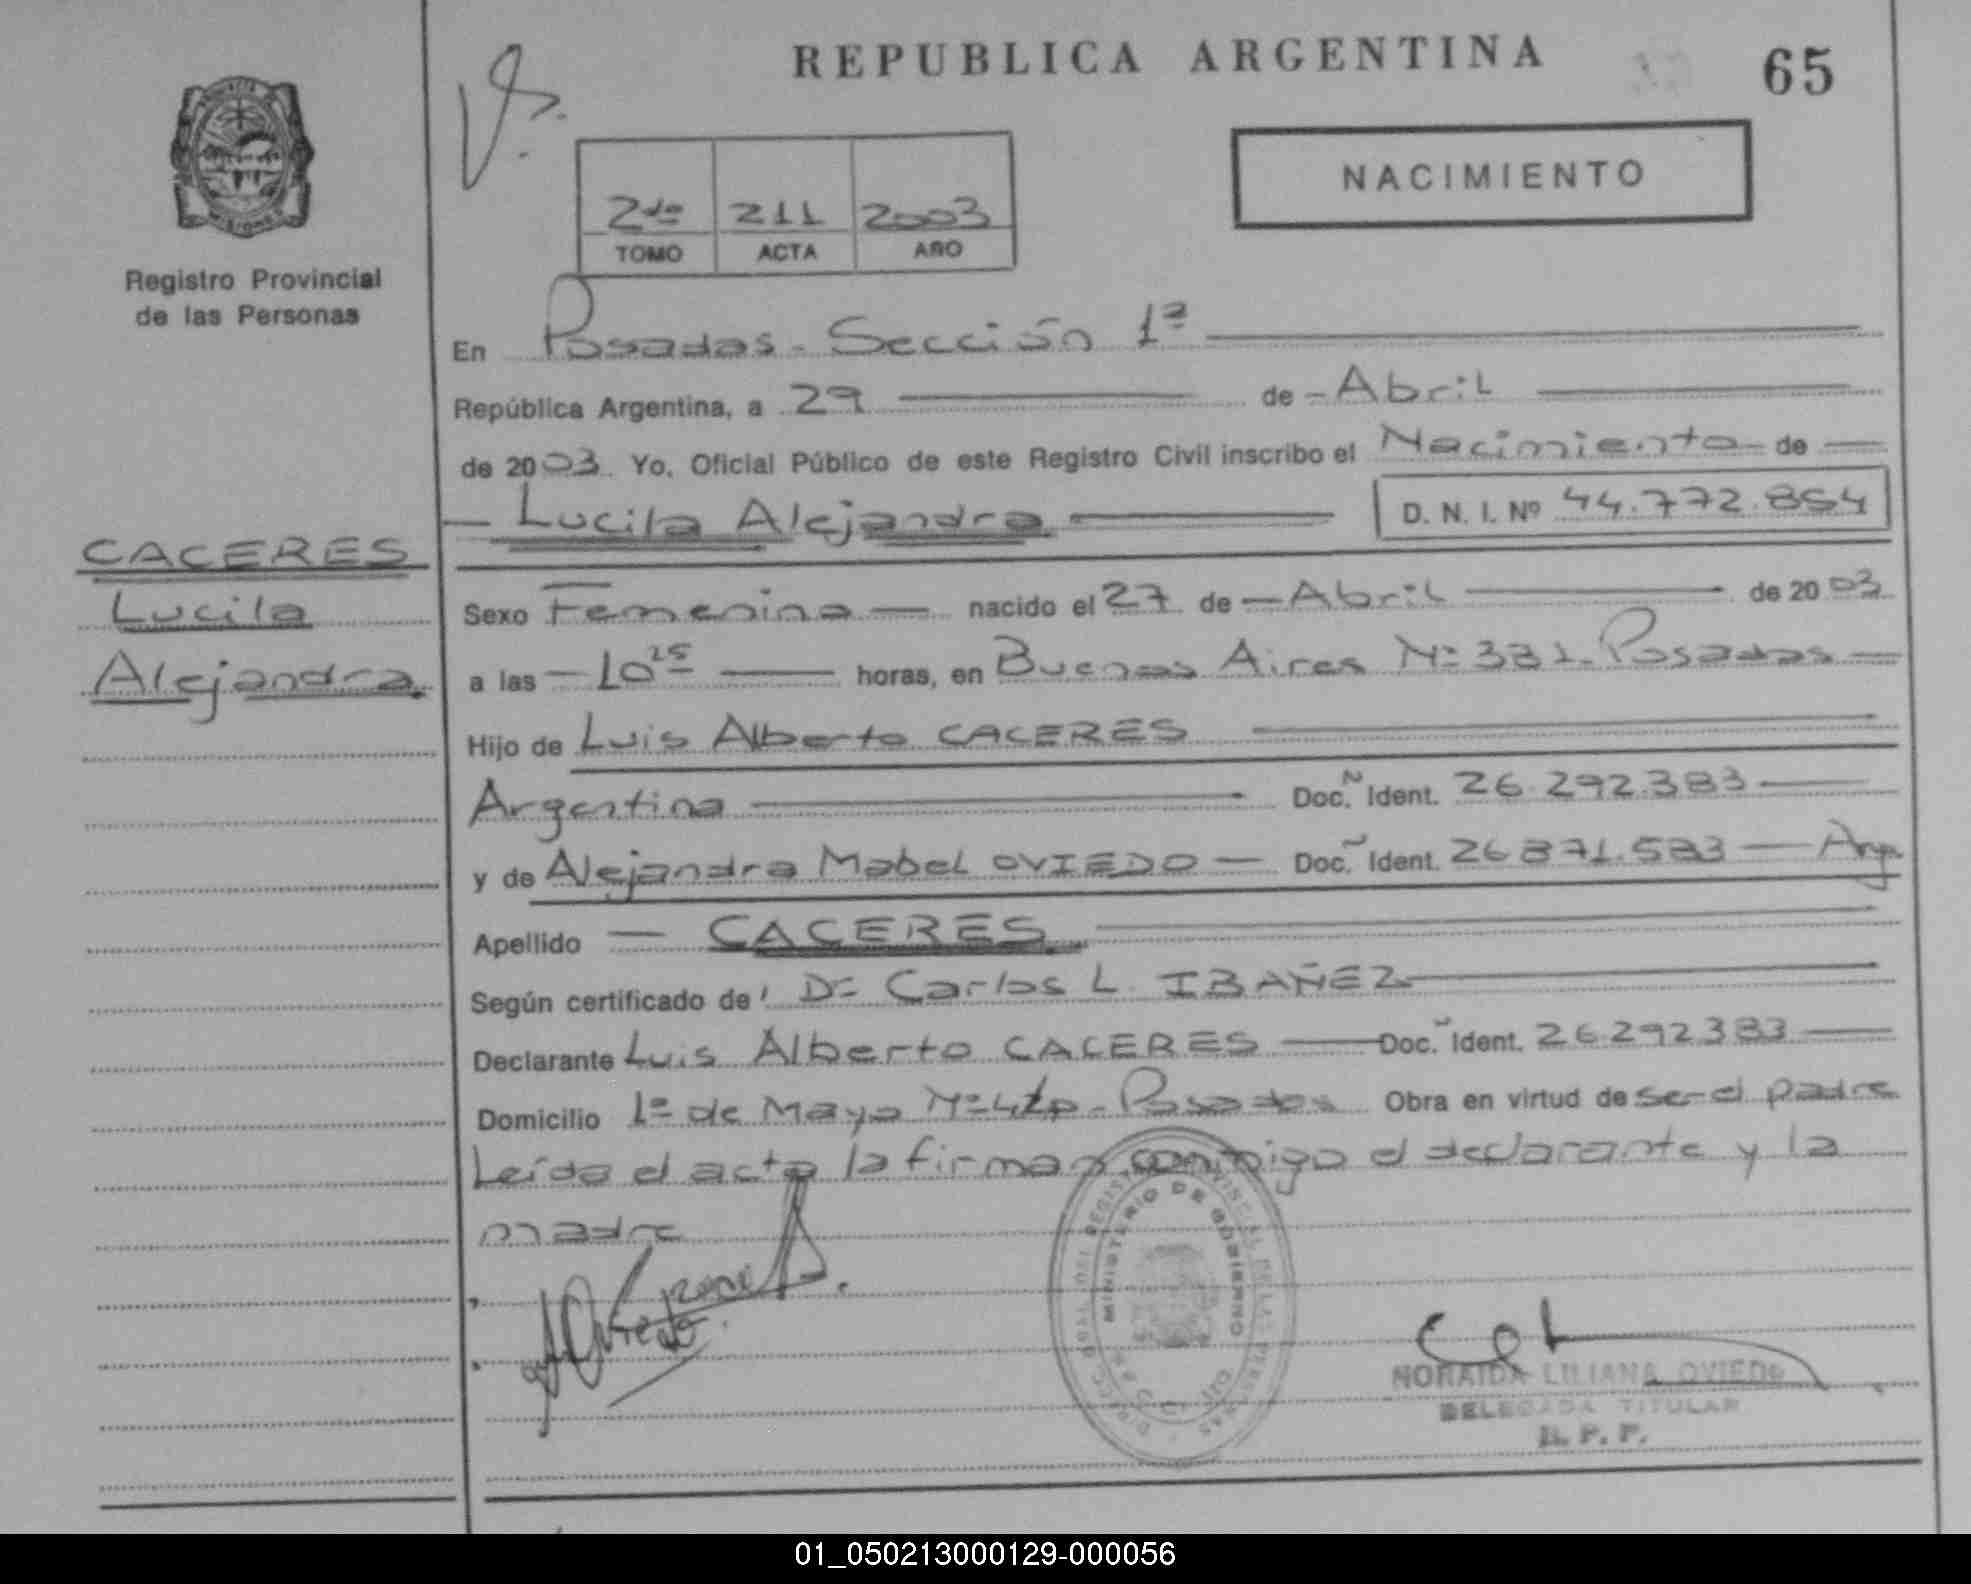 REPUBLICA ARGENTINA
65
NACIMIENTO
2do 211 2003
TOMO ACTA AÑO
Registro Provincial
de las Personas
En Posadas - Sección 1ª
República Argentina, a 29 de - Abril
de 2003. Yo, Oficial Público de este Registro Civil inscribo el Nacimiento de
Lucila Alejandra D. N. I. Nº 44.772.854
CACERES
Lucila
Alejandra
Sexo Femenino nacido el 27 de - Abril de 2003
a las - 10 25 horas, en Buenos Aires Nº 331 - Posadas
Hijo de Luis Alberto CACERES
Argentina Doc. N Ident. 26.292.383
y de Alejandra Mabel OVIEDO Doc. Ident. 26.871.583 Arg
Apellido CACERES
Según certificado de Dr Carlos L. IBAÑEZ
Declarante Luis Alberto CACERES Doc. Ident. 26.292.383
Domicilio 1º de Mayo Nº - Posadas Obra en virtud de ser el padre
Leída el acta la firman conmigo el declarante y la
madre
MINISTERIO DE GOBIERNO
NORAIDA LILIANA OVIEDO
DELEGADA TITULAR
R. P. P.
01_050213000129-000056